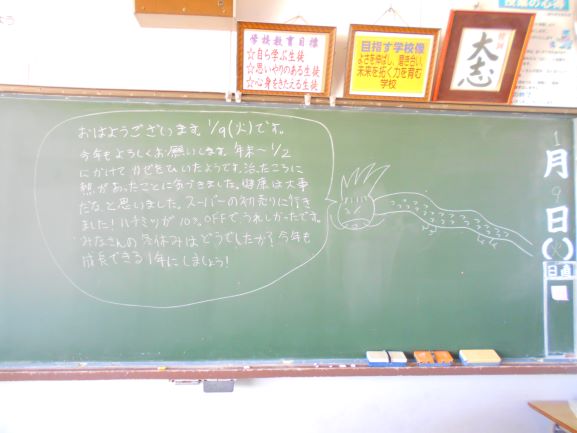 学校教育目標
☆自ら学ぶ生徒
☆思いやりのある生徒
☆心身をきたえる生徒
目指す学校像
よさを伸ばし、磨き合い、
未来を拓く力を育む
学校
大志
の心得
おはようございます。1/9(火)です。
今年もよろしくお願いします。年末～1/2
にかけてカゼをひいたようです。治ったころに
熱があったことに気づきました。健康は大事
だなと思いました。スーパーの初売りに行き
ました！ハチミツが10% OFFでうれしかったです。
みなさんの冬休みはどうでしたか？今年も
成長できる1年にしましょう！
1
月
9
日
(火)
日直